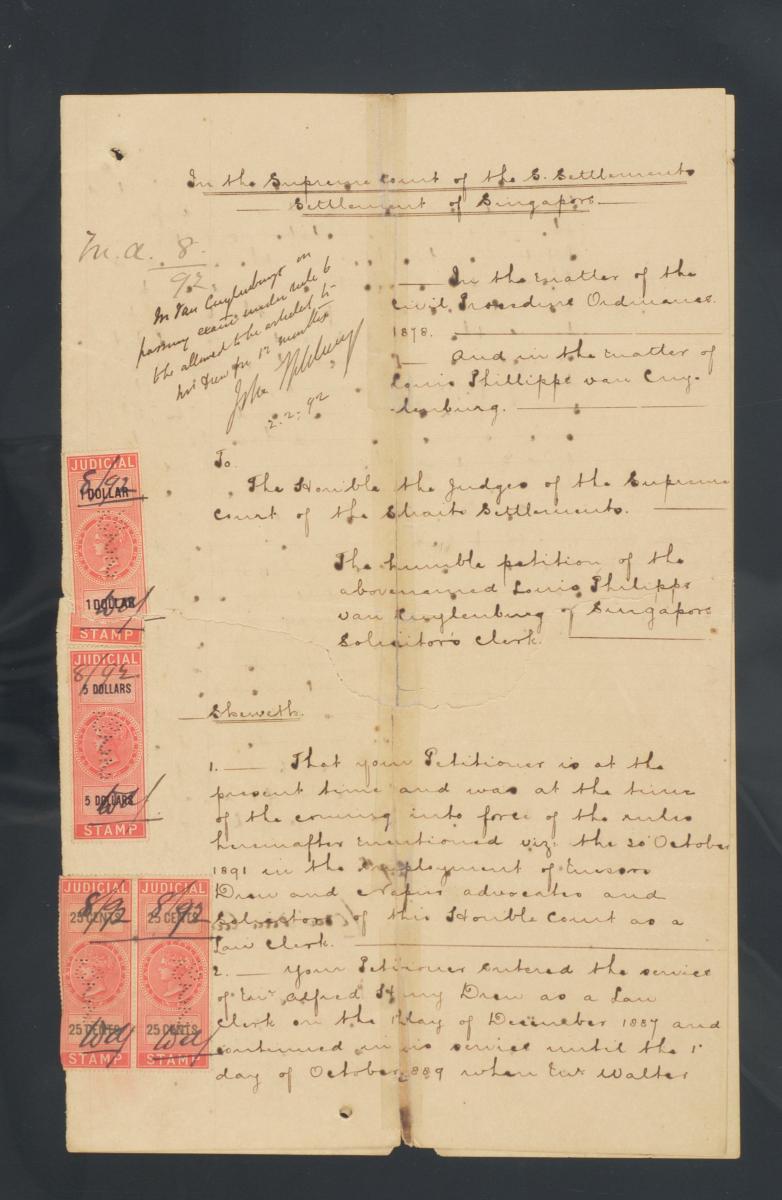 In the Supreme Court of the S. Settlements
Settlement of Singapore
M. A. 8
92
Mr Van Cuylenburgh on
passing exam: under rule 6
to be allowed to be articled to
Mr Drew for 12 months
2.2.92
In the matter of the
Civil Procedure Ordinance
1878.
And in the matter of
Louis Phillippe van Cuy-
-lenburg.
To
The Honble the Judges of the Supreme
Court of the Straits Settlements.
The humble petition of the
abovenamed Louis Philippe
van Cuylenburg of Singapore
Solicitor's Clerk.
Sheweth.
1. That your Petitioner is at the
present time and was at the time
of the coming into force of the rules
hereinafter mentioned viz. the 20 October
1891 in the employment of Messrs
Drew and Napier advocates and
Solicitors of this Honble Court as a
Law Clerk.
2. Your Petitioner entered the service
of Mr Alfred Henry Drew as a Law
Clerk on the 1 day of December 1887 and
continued in his service until the 1st
day of October 1889 when Mr Walter
JUDICIAL
8/92
1 DOLLAR
1 DOLLAR
STAMP
JUDICIAL
8/92
5 DOLLARS
5 DOLLARS
STAMP
JUDICIAL JUDICIAL
8/92 8/92
25 CENTS 25 CENTS
25 CENTS 25 CENTS
STAMP STAMP